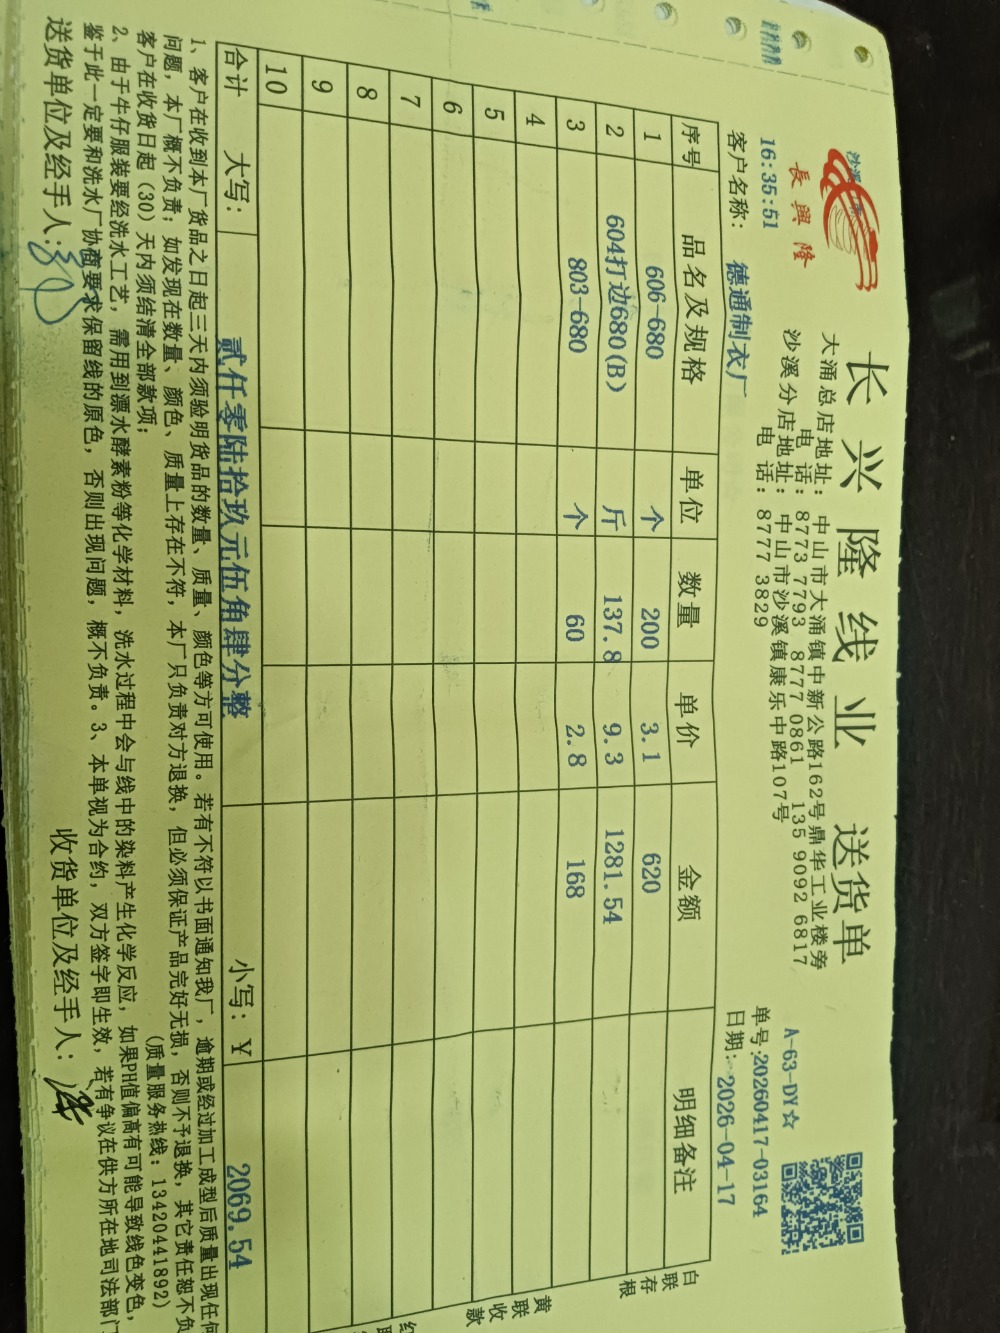 長興隆
长兴隆线业 送货单
大涌总店地址: 中山市大涌镇中新公路162号鼎华工业楼旁
电 话: 8773 7793 8777 0861 135 9092 6817
沙溪分店地址: 中山市沙溪镇康乐中路107号
电 话: 8777 3829
A-63-DY☆
16:35:51
单号:20260417-03164
客户名称: 德通制衣厂
日期: 2026-04-17
序号 品名及规格 单位 数量 单价 金额 明细备注
1 606-680 个 200 3.1 620
2 604打边680(B) 斤 137.8 9.3 1281.54
3 803-680 个 60 2.8 168
4
5
6
7
8
9
10
合计 大写: 贰仟零陆拾玖元伍角肆分整 小写: ¥ 2069.54
白联存根
黄联收款
1、客户在收到本厂货品之日起三天内须验明货品的数量、质量、颜色等方可使用。若有不符以书面通知我厂,逾期或经过加工成型后质量出现任何
问题,本厂概不负责;如发现在数量、颜色、质量上存在不符,本厂只负责对方退换,但必须保证产品完好无损,否则不予退换,其它责任恕不负
客户在收货日起(30)天内须结清全部款项; (质量服务热线:13420441892)
2、由于牛仔服装要经洗水工艺,需用到漂水酵素粉等化学材料,洗水过程中会与线中的染料产生化学反应,如果PH值偏高有可能导致线色变色,
鉴于此一定要和洗水厂协商要求保留线的原色,否则出现问题,概不负责。3、本单视为合约,双方签字即生效,若有争议在供方所在地司法部门
送货单位及经手人: 收货单位及经手人: